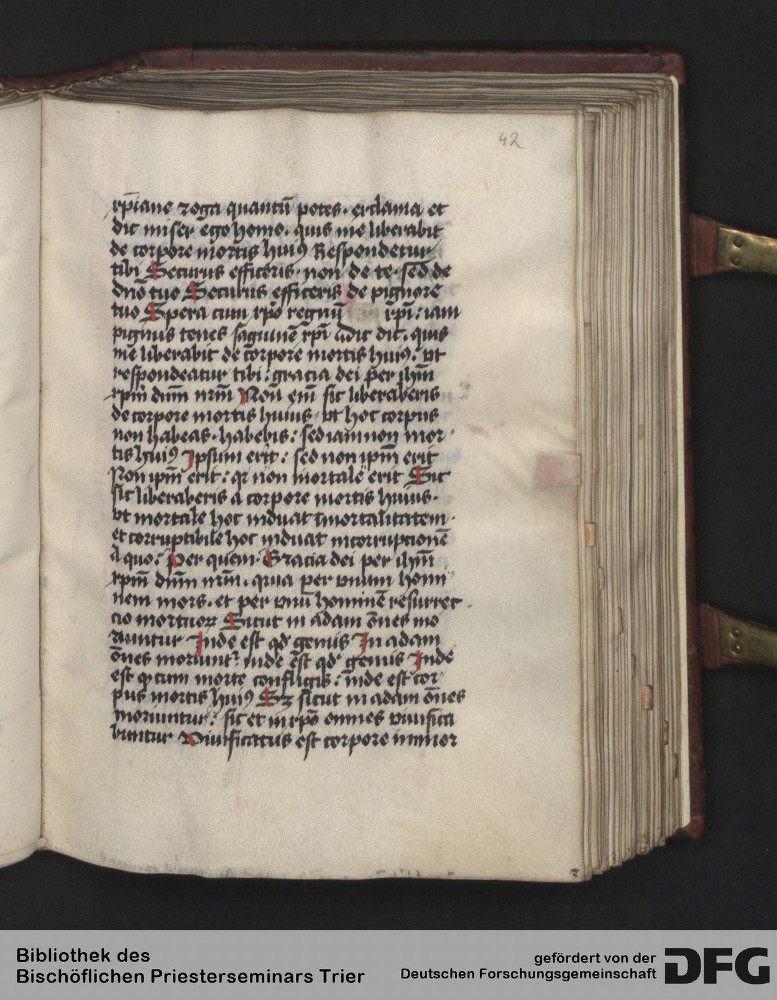 42
xp̄iane roga quantū potes · exclama et
dic miser ego homo · quis me liberabit
de corpore mortis huiꝰ Respondetur
tibi Securus efficeris · non de te · sed de
dn̄o tuo Securus efficeris de pignore
tuo Spera cum xp̄o regnū xp̄i : iam
pignus tenes sāguinē xp̄i dic · quis
me liberabit de corpore mortis huiꝰ : vt
respondeatur tibi : gracia dei per ihm̄
xpm̄ dn̄m nr̄m Non em̄ sic liberaberis
de corpore mortis huius · vt hoc corpus
non habeas · habebis : sed iam non mor
tis huiꝰ Ipsum erit : sed non ipm̄ erit
Non ipm̄ erit : qr non mortale erit Sic
sic liberaberis a corpore mortis huius ·
vt mortale hoc induat imortalitatem ·
et corruptibile hoc induat incorrupcionē
A quo : Per quem · Gracia dei per ihm̄
xpm̄ dn̄m nr̄m · quia per vnum homi
nem mors · et per vnū hominē resurrec
cio mortuoꝝ Sicut in adam ōnes mo
riuntur Inde est qd̄ gemis In adam
ōnes moriunt᷑ inde est qd̄ gemis Inde
est ꝙ cum morte confligis : inde est cor
pus mortis huiꝰ Sꝫ sicut in adam ōnes
moriuntur : sic et in xp̄o omnes viuifica
buntur Viuificatus est corpore immor
Bibliothek des
Bischöflichen Priesterseminars Trier
gefördert von der
Deutschen Forschungsgemeinschaft
DFG